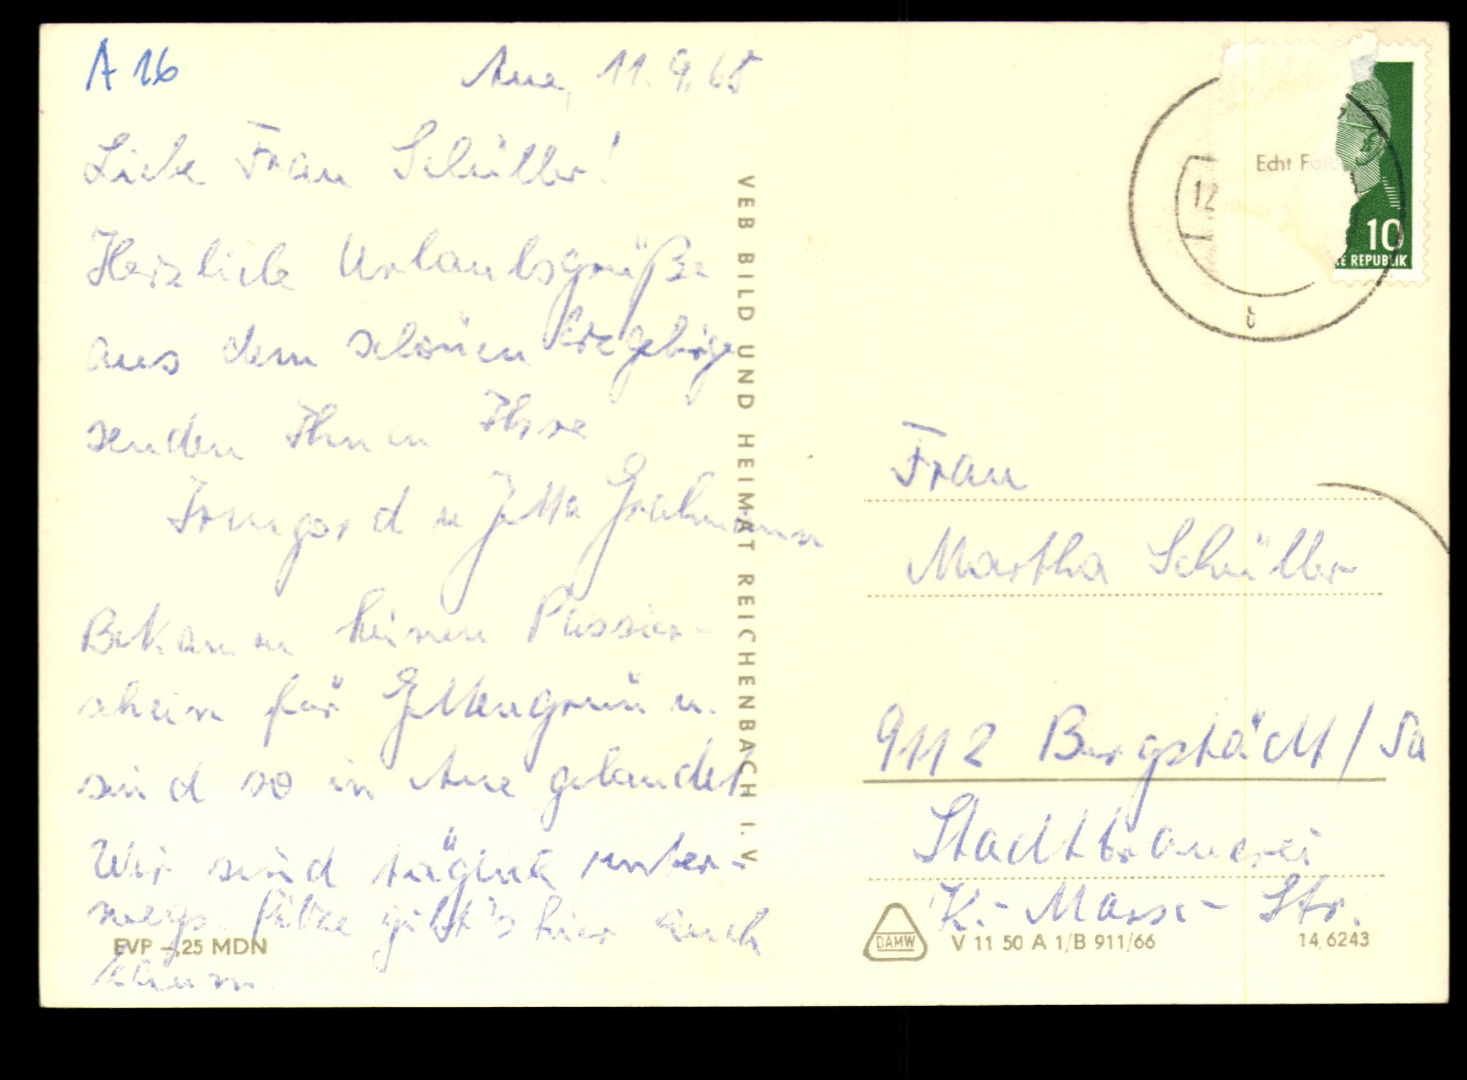 A 16
Aue, 11.9.68
Liebe Frau Schüller!
Herzliche Urlaubsgrüße
aus dem schönen Erzgebirge
senden Ihnen Ihre
Irmgard u Jutta Grahmann
Bekamen keinen Passier-
schein für Jettengrün u.
sind so in Aue gelandet
Wir sind täglich unter-
wegs. Pilze gibt's hier auch
kaum.
EVP -,25 MDN
VEB BILD UND HEIMAT REICHENBACH I. V
12
Echt
10
REPUBLIK
b
Frau
Martha Schüller
9112 Burgstädt/Sa
Stadtbrauerei
K.-Marx-Str.
DAMW
V 11 50 A 1/B 911/66
14 6243